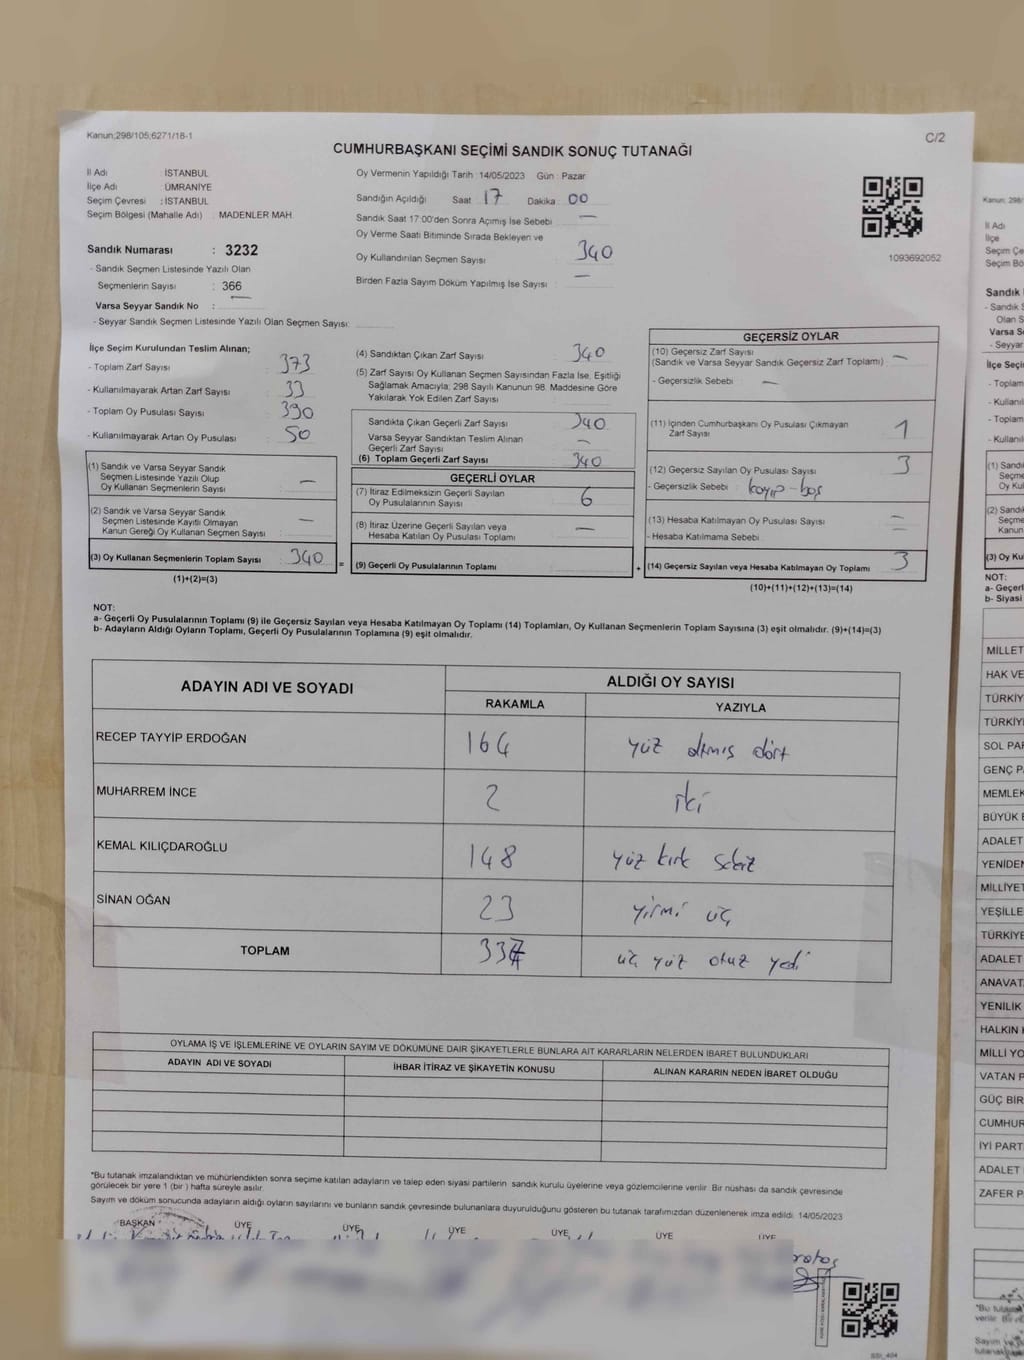 Kanun;298/105;6271/18-1
C/2
CUMHURBAŞKANI SEÇİMİ SANDIK SONUÇ TUTANAĞI
İl Adı : İSTANBUL
İlçe Adı : ÜMRANİYE
Seçim Çevresi : İSTANBUL
Seçim Bölgesi (Mahalle Adı) : MADENLER MAH.
Sandık Numarası : 3232
- Sandık Seçmen Listesinde Yazılı Olan
Seçmenlerin Sayısı : 366
Varsa Seyyar Sandık No :
- Seyyar Sandık Seçmen Listesinde Yazılı Olan Seçmen Sayısı:
Oy Vermenin Yapıldığı Tarih : 14/05/2023 Gün : Pazar
Sandığın Açıldığı Saat 17 Dakika 00
Sandık Saat 17:00'den Sonra Açımış İse Sebebi —
Oy Verme Saati Bitiminde Sırada Bekleyen ve
Oy Kullandırılan Seçmen Sayısı : 340
Birden Fazla Sayım Döküm Yapılmış İse Sayısı : —
1093692052
İlçe Seçim Kurulundan Teslim Alınan;
- Toplam Zarf Sayısı : 373
- Kullanılmayarak Artan Zarf Sayısı : 33
- Toplam Oy Pusulası Sayısı : 390
- Kullanılmayarak Artan Oy Pusulası : 50
(1) Sandık ve Varsa Seyyar Sandık
Seçmen Listesinde Yazılı Olup
Oy Kullanan Seçmenlerin Sayısı : —
(2) Sandık ve Varsa Seyyar Sandık
Seçmen Listesinde Kayıtlı Olmayan
Kanun Gereği Oy Kullanan Seçmen Sayısı : —
(3) Oy Kullanan Seçmenlerin Toplam Sayısı : 340
(1)+(2)=(3)
(4) Sandıktan Çıkan Zarf Sayısı : 340
(5) Zarf Sayısı Oy Kullanan Seçmen Sayısından Fazla İse, Eşitliği
Sağlamak Amacıyla; 298 Sayılı Kanunun 98. Maddesine Göre
Yakılarak Yok Edilen Zarf Sayısı :
Sandıkta Çıkan Geçerli Zarf Sayısı : 340
Varsa Seyyar Sandıktan Teslim Alınan
Geçerli Zarf Sayısı : —
(6) Toplam Geçerli Zarf Sayısı : 340
GEÇERLİ OYLAR
(7) İtiraz Edilmeksizin Geçerli Sayılan
Oy Pusulalarının Sayısı : 6
(8) İtiraz Üzerine Geçerli Sayılan veya
Hesaba Katılan Oy Pusulası Toplamı : —
= (9) Geçerli Oy Pusulalarının Toplamı
GEÇERSİZ OYLAR
(10) Geçersiz Zarf Sayısı
(Sandık ve Varsa Seyyar Sandık Geçersiz Zarf Toplamı) : —
- Geçersizlik Sebebi : —
(11) İçinden Cumhurbaşkanı Oy Pusulası Çıkmayan
Zarf Sayısı : 1
(12) Geçersiz Sayılan Oy Pusulası Sayısı : 3
- Geçersizlik Sebebi : kayıp-boş
(13) Hesaba Katılmayan Oy Pusulası Sayısı : —
- Hesaba Katılmama Sebebi : —
+ (14) Geçersiz Sayılan veya Hesaba Katılmayan Oy Toplamı 3
(10)+(11)+(12)+(13)=(14)
NOT:
a- Geçerli Oy Pusulalarının Toplamı (9) ile Geçersiz Sayılan veya Hesaba Katılmayan Oy Toplamı (14) Toplamları, Oy Kullanan Seçmenlerin Toplam Sayısına (3) eşit olmalıdır. (9)+(14)=(3)
b- Adayların Aldığı Oyların Toplamı, Geçerli Oy Pusulalarının Toplamına (9) eşit olmalıdır.
ADAYIN ADI VE SOYADI
ALDIĞI OY SAYISI
RAKAMLA YAZIYLA
RECEP TAYYİP ERDOĞAN 164 yüz atmış dört
MUHARREM İNCE 2 iki
KEMAL KILIÇDAROĞLU 148 yüz kırk sekiz
SİNAN OĞAN 23 yirmi üç
TOPLAM 337 üç yüz otuz yedi
OYLAMA İŞ VE İŞLEMLERİNE VE OYLARIN SAYIM VE DÖKÜMÜNE DAİR ŞİKAYETLERLE BUNLARA AİT KARARLARIN NELERDEN İBARET BULUNDUKLARI
ADAYIN ADI VE SOYADI İHBAR İTİRAZ VE ŞİKAYETİN KONUSU ALINAN KARARIN NEDEN İBARET OLDUĞU
*Bu tutanak imzalandıktan ve mühürlendikten sonra seçime katılan adayların ve talep eden siyasi partilerin sandık kurulu üyelerine veya gözlemcilerine verilir. Bir nüshası da sandık çevresinde
görülecek bir yere 1 (bir) hafta süreyle asılır.
Sayım ve döküm sonucunda adayların aldığı oyların sayılarını ve bunların sandık çevresinde bulunanlara duyurulduğunu gösteren bu tutanak tarafımızdan düzenlenerek imza edildi. 14/05/2023
BAŞKAN ÜYE ÜYE ÜYE ÜYE ÜYE ÜYE
Kanun; 298/
İl Adı
İlçe
Seçim Çe
Seçim Bö
Sandık
- Sandık S
Olan S
Varsa S
- Seyyar
İlçe Seçi
- Toplam
- Kullanıl
- Toplam
- Kullanıl
(1) Sandı
Seçme
Oy Ku
(2) Sandı
Seçme
Kanun
(3) Oy Ku
NOT:
a- Geçerl
b- Siyasi
MİLLET
HAK VE
TÜRKİY
TÜRKİY
SOL PAR
GENÇ PA
MEMLEK
BÜYÜK B
ADALET
YENİDEN
MİLLİYET
YEŞİLLE
TÜRKİYE
ADALET
ANAVAT
YENİLİK
HALKIN K
MİLLİ YO
VATAN P
GÜÇ BİR
CUMHUR
İYİ PARTİ
ADALET
ZAFER P
*Bu tutanak
verilir. Bi
Sayım ve
tutanak